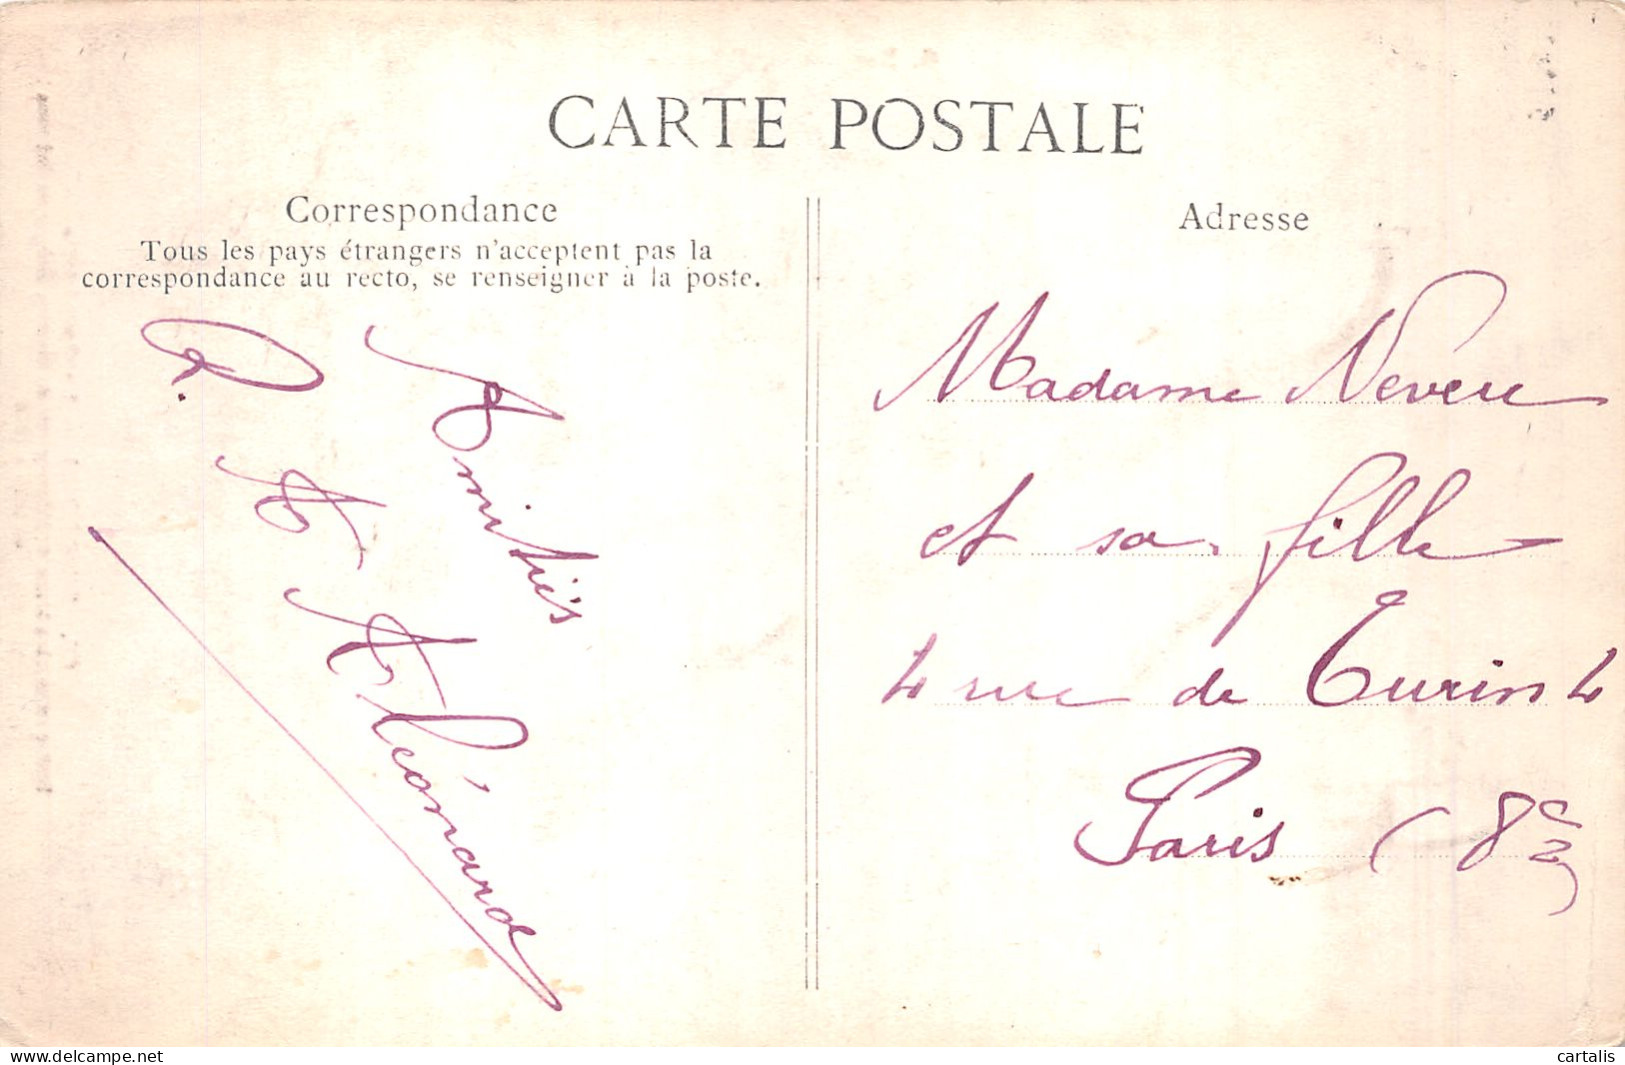 CARTE POSTALE
Correspondance
Tous les pays étrangers n'acceptent pas la
correspondance au recto, se renseigner à la poste.
Amitiés
Léonard
Adresse
Madame Nevere
et sa fille
4 rue de Turin 4
Paris (8e)
www.delcampe.net
cartalis